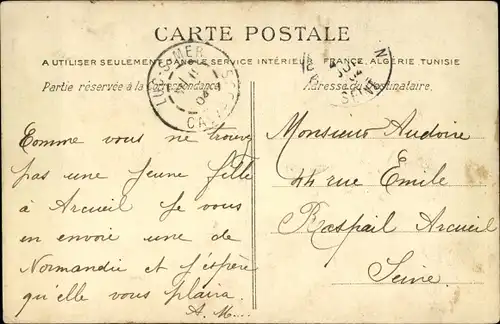 CARTE POSTALE
A UTILISER SEULEMENT DANS LE SERVICE INTÉRIEUR FRANCE, ALGÉRIE, TUNISIE
Partie réservée à la Correspondance
Adresse du Destinataire.
LUC-S-MER
CAL
SEINE
Comme vous ne trouvez
pas une jeune fille
à Arcueil je vous
en envoie une de
Normandie et j'éspère
qu'elle vous plaira.
A. M....
Monsieur Audoire
44 rue Emile
Raspail Arcueil
Seine.